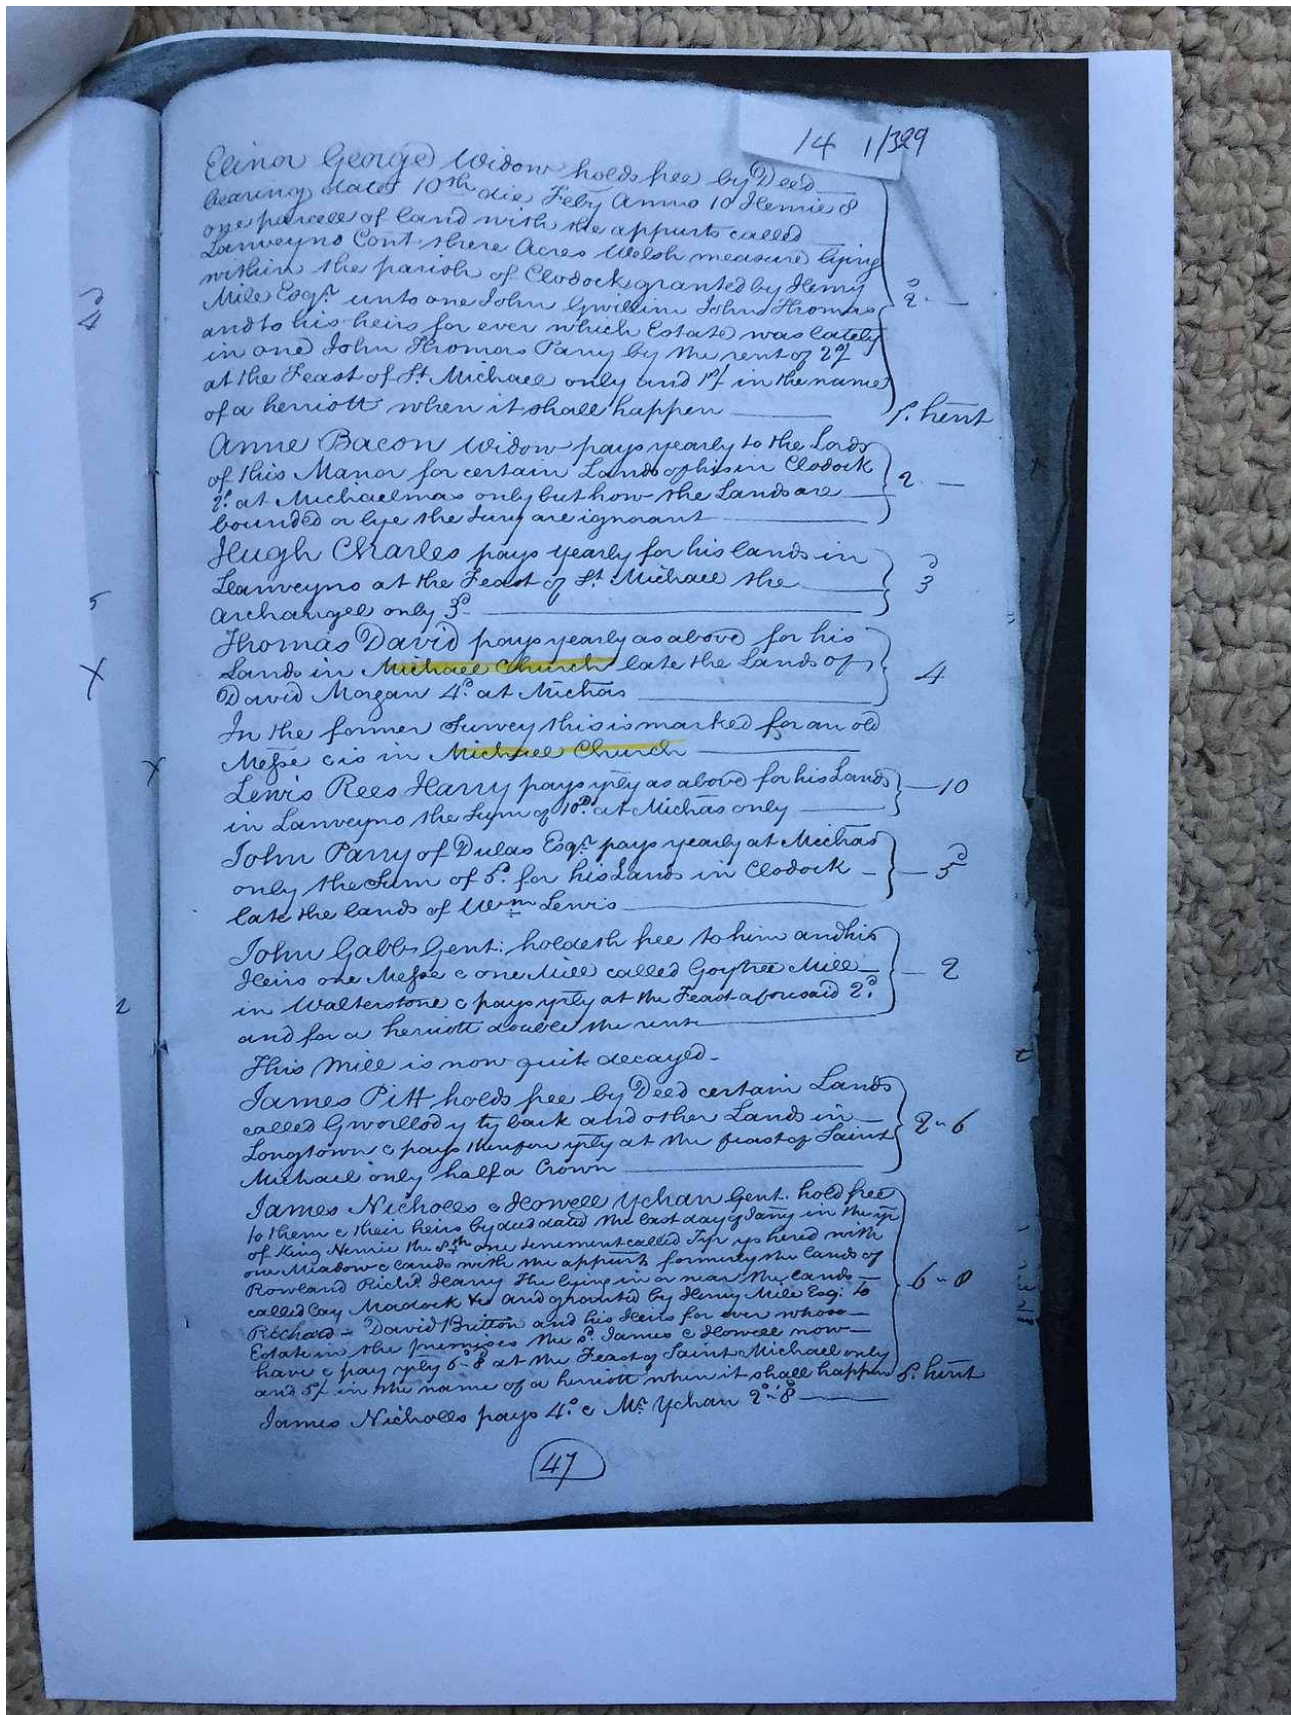 14 1/329
Elinor George Widow holds free by Deed
bearing date 10th die Feby Anno 10 Henrie 8
one parcell of land with the appurts called
Lanveyno Cont there Acres Welsh measure lying
within the parish of Clodock granted by Henry
Mile Esqr. unto one John Gwillim John Thomas
and to his heirs for ever which Estate was lately
in one John Thomas Parry by the rent of 2d
at the Feast of St. Michael only and 1s/ in the name
of a herriott when it shall happen
2
hent
Anne Bacon Widow pays yearly to the Lords
of this Manor for certain Lands of his in Clodock
2d. at Michaelmas only but how the Lands are
bounded or lye the Jury are ignorant
2
Hugh Charles pays yearly for his lands in
Llanveyno at the Feast of St. Michael the
Archangel only 3d
3d
Thomas David pays yearly as above for his
Lands in Michael Church late the Lands of
David Morgan 4d. at Michas
4
In the former Survey this is marked for an old
Messe & is in Michael Church
Lewis Rees Harry pays yrly as above for his Lands
in Lanveyno the Sum of 10d. at Michas only
10
John Parry of Dulas Esqr. pays yearly at Michas
only the Sum of 5d. for his Lands in Clodock
late the lands of Wm Lewis
5d
John Gabb Gent: holdeth free to him and his
Heirs one Messe & one Mill called Goytree Mill
in Walterstone & pays yrly at the Feast aforesaid 2d.
and for a herriott double the rent
2
This Mill is now quit decayed
James Pitt holds free by Deed certain Lands
called Gworllod y ty back and other Lands in
Longtown & pays therefore yrly at the feast of Saint
Michael only half a Crown
2 " 6
James Nicholls & Howell Ychan Gent. hold free
to them & their heirs by deed dated the last day of Jany in the yr
of King Henrie the 8th one tenement called Tyr ys hered with
one Meadow & lands with the appurts formerly the lands of
Rowland Richd. Harry lying in or near the lands
called Cay Madock and granted by Henry Mile Esq: to
Richard David Britton and his Heirs for ever whose
Estate in the premises the sd. James & Howell now
have & pay yrly 6 - 8 at the Feast of Saint Michael only
and 5/ in the name of a herriott when it shall happen
6 " 8
5. herit
James Nicholls pays 4s. & Mr. Ychan 2s " 8d
47